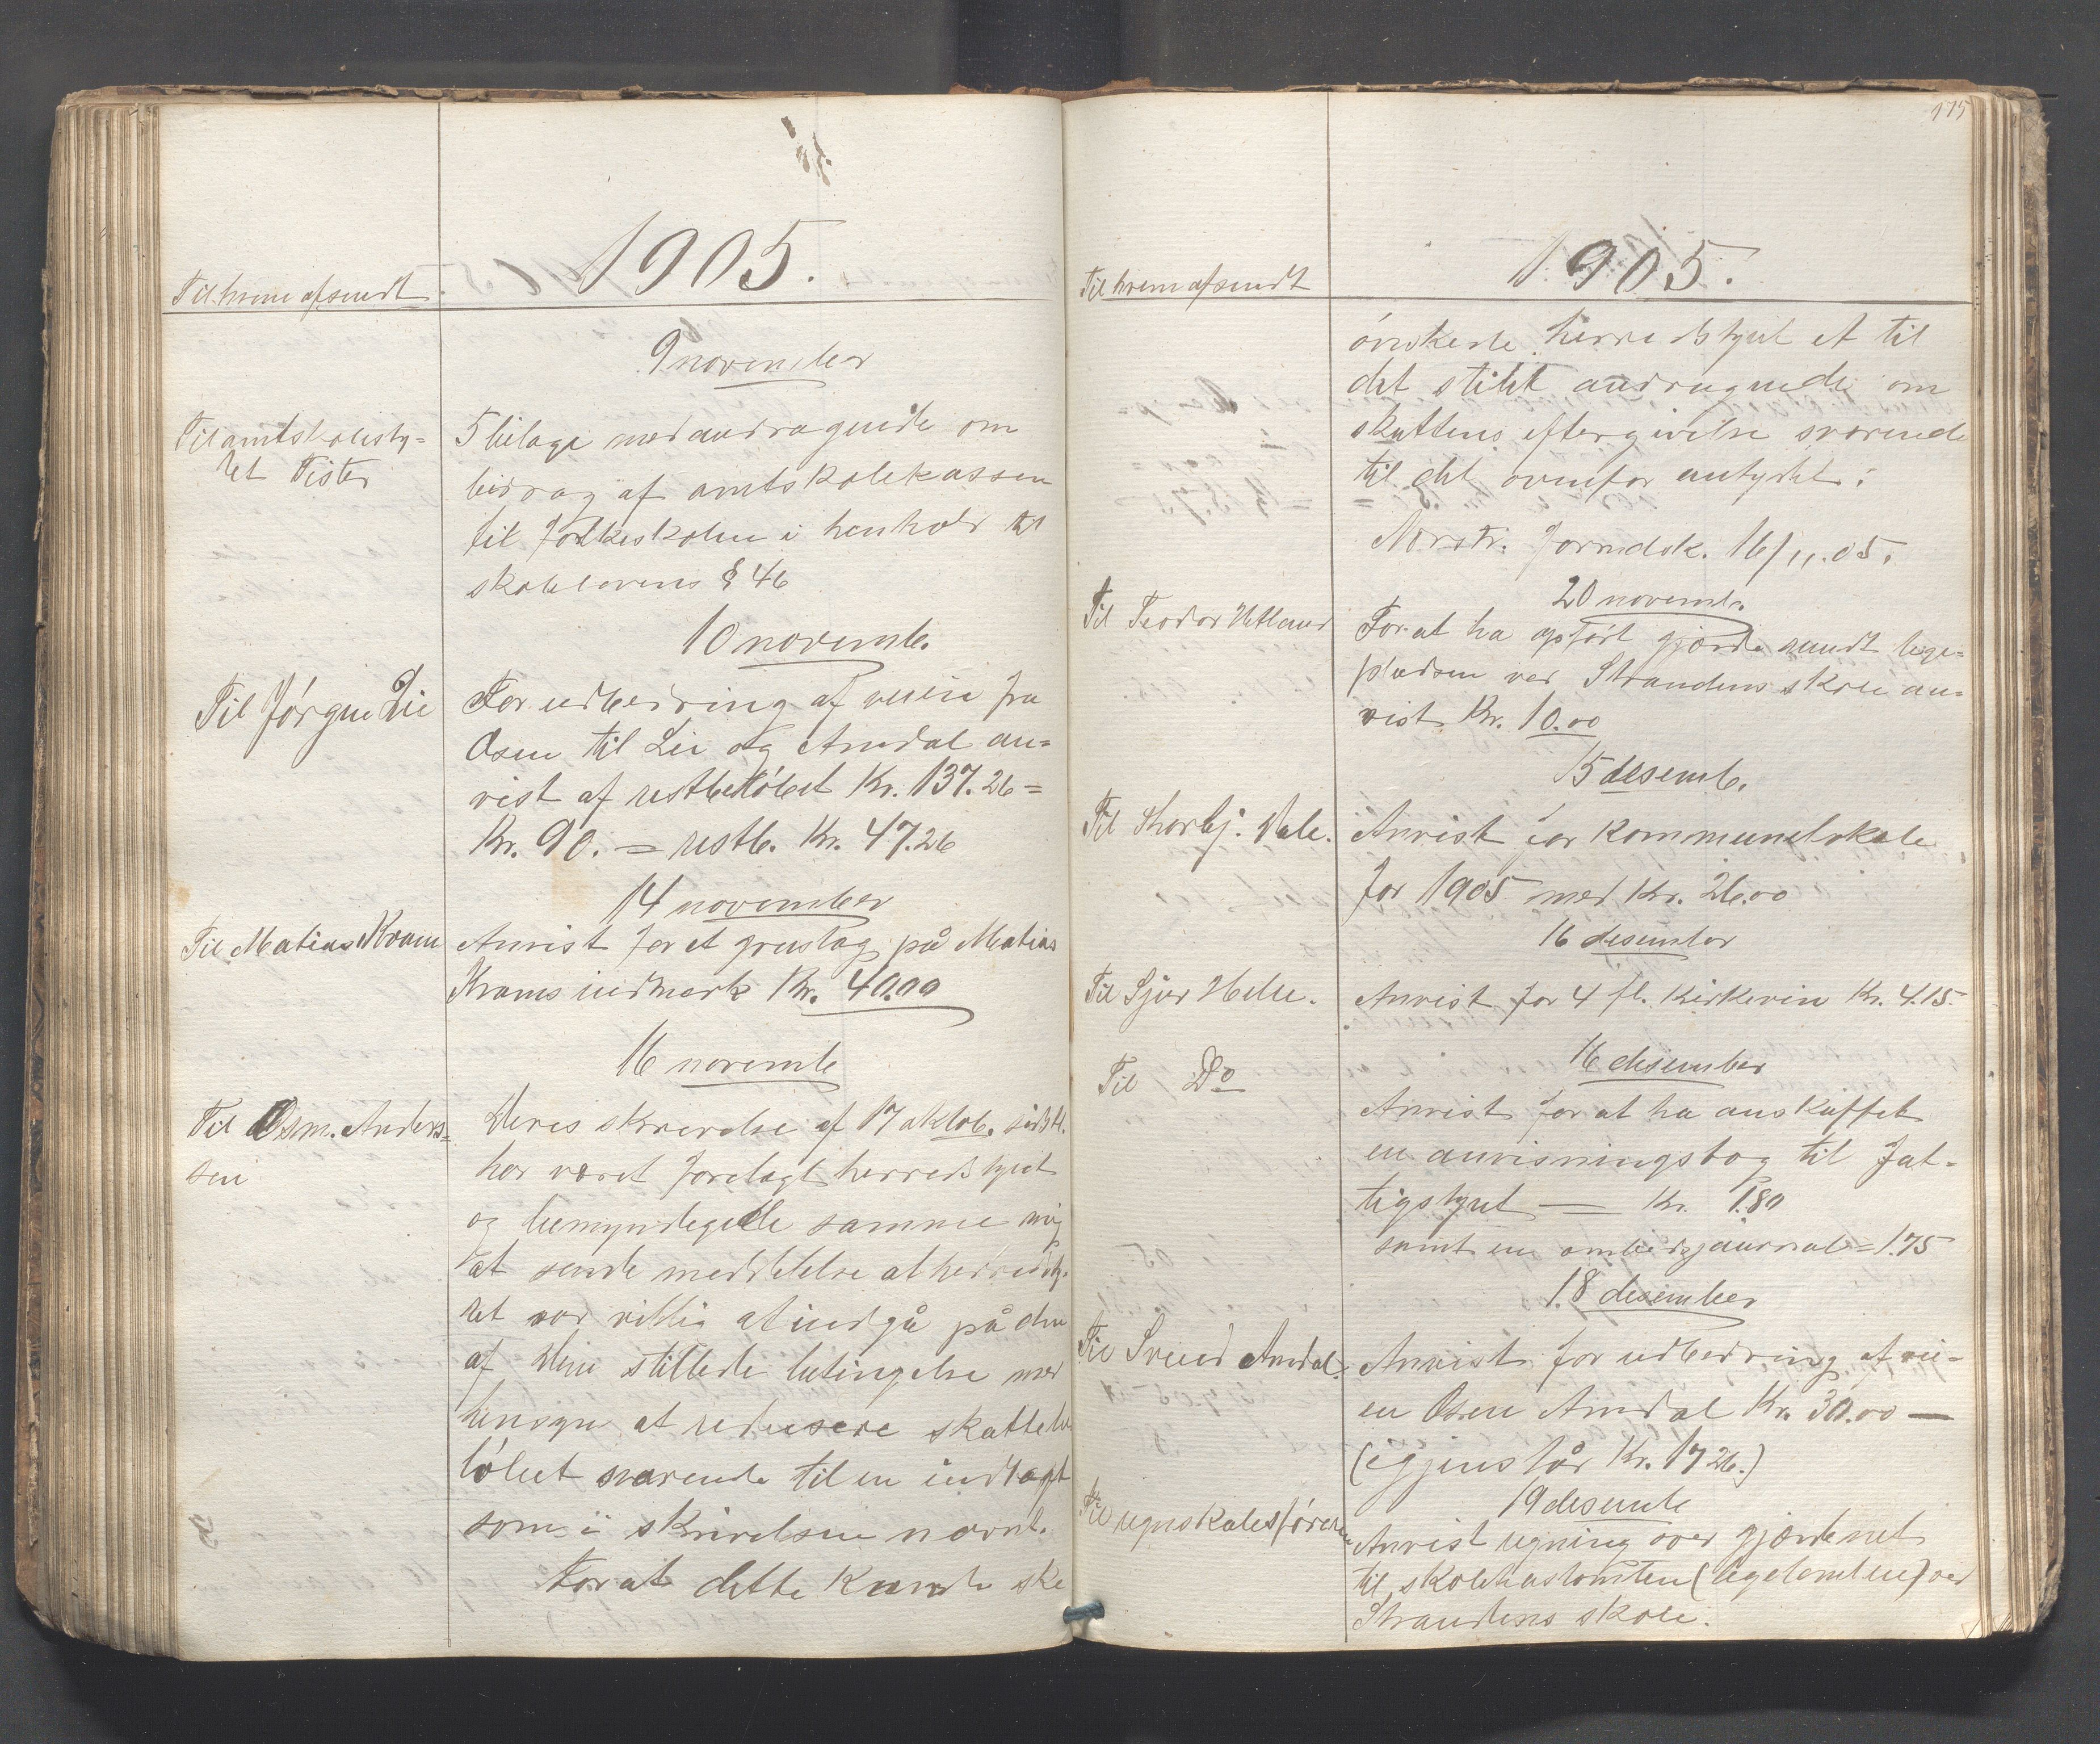 1905.
Til hvem afsendt
9 november
Til amtskolesty=
ret Tister
5 bilage med andragende om
bidrag af amtskolekassen
til folkeskolen i henhold til
skolelovens § 46
10 novemb.
Til Jørgen Lie
For udbedring af veien fra
Osen til Lie og Amdal an=
vist af restbeløbet Kr. 137.26 =
Kr. 90. = restb. Kr. 47.26
14 november
Til Matias Kram
Anvist for et grustag på Matias
Krams indmark Kr. 40.00
16 novemb
Til Osm. Anders=
sen
Deres skrivelse af 17 oktob. sidstl.
har været forelagt herredstyret
og bemyndigede samme mig
at sende meddelelse at herredsty-
ret var villig at indgå på den
af Dem stillede betingelse med
hensyn at redusere skattebe-
løbet svarende til en indtægt
som i skrivelsen nævnt.
Forat dette kunde ske
175
1905.
Til hvem afsendt
ønskede herredstyret et til
det stilet andragende om
skattens eftergivelse svarende
til det ovenfor antydet.
Norstr. formdsk. 16/11.05.
20 novemb.
Til Teodor Hetland
For at ha opført gjærde rundt lege=
pladsen ved Strandens skole an=
vist Kr. 10.00
15 desemb.
Til Thorbj. Vale.
Anvist for kommunelokale
for 1905 med Kr. 26.00
16 desember
Til Sjur Helle.
Anvist for 4 fl. kirkevin Kr. 4.15.
16 desember
Til Do
Anvist for at ha anskaffet
en anvisningsbog til fat=
tigstyret — Kr. 1.80
samt en ombudsjournal = 1.75
18 desember
Til Sveind Amdal.
Anvist for udbedring af vei=
en Osen Amdal Kr. 30.00 —
(igjenstår Kr. 17 26.)
19 desemb
Til regnskabsføreren
Anvist regning over gjærdenet
til skolehustomten (legetomten) ved
Strandens skole.